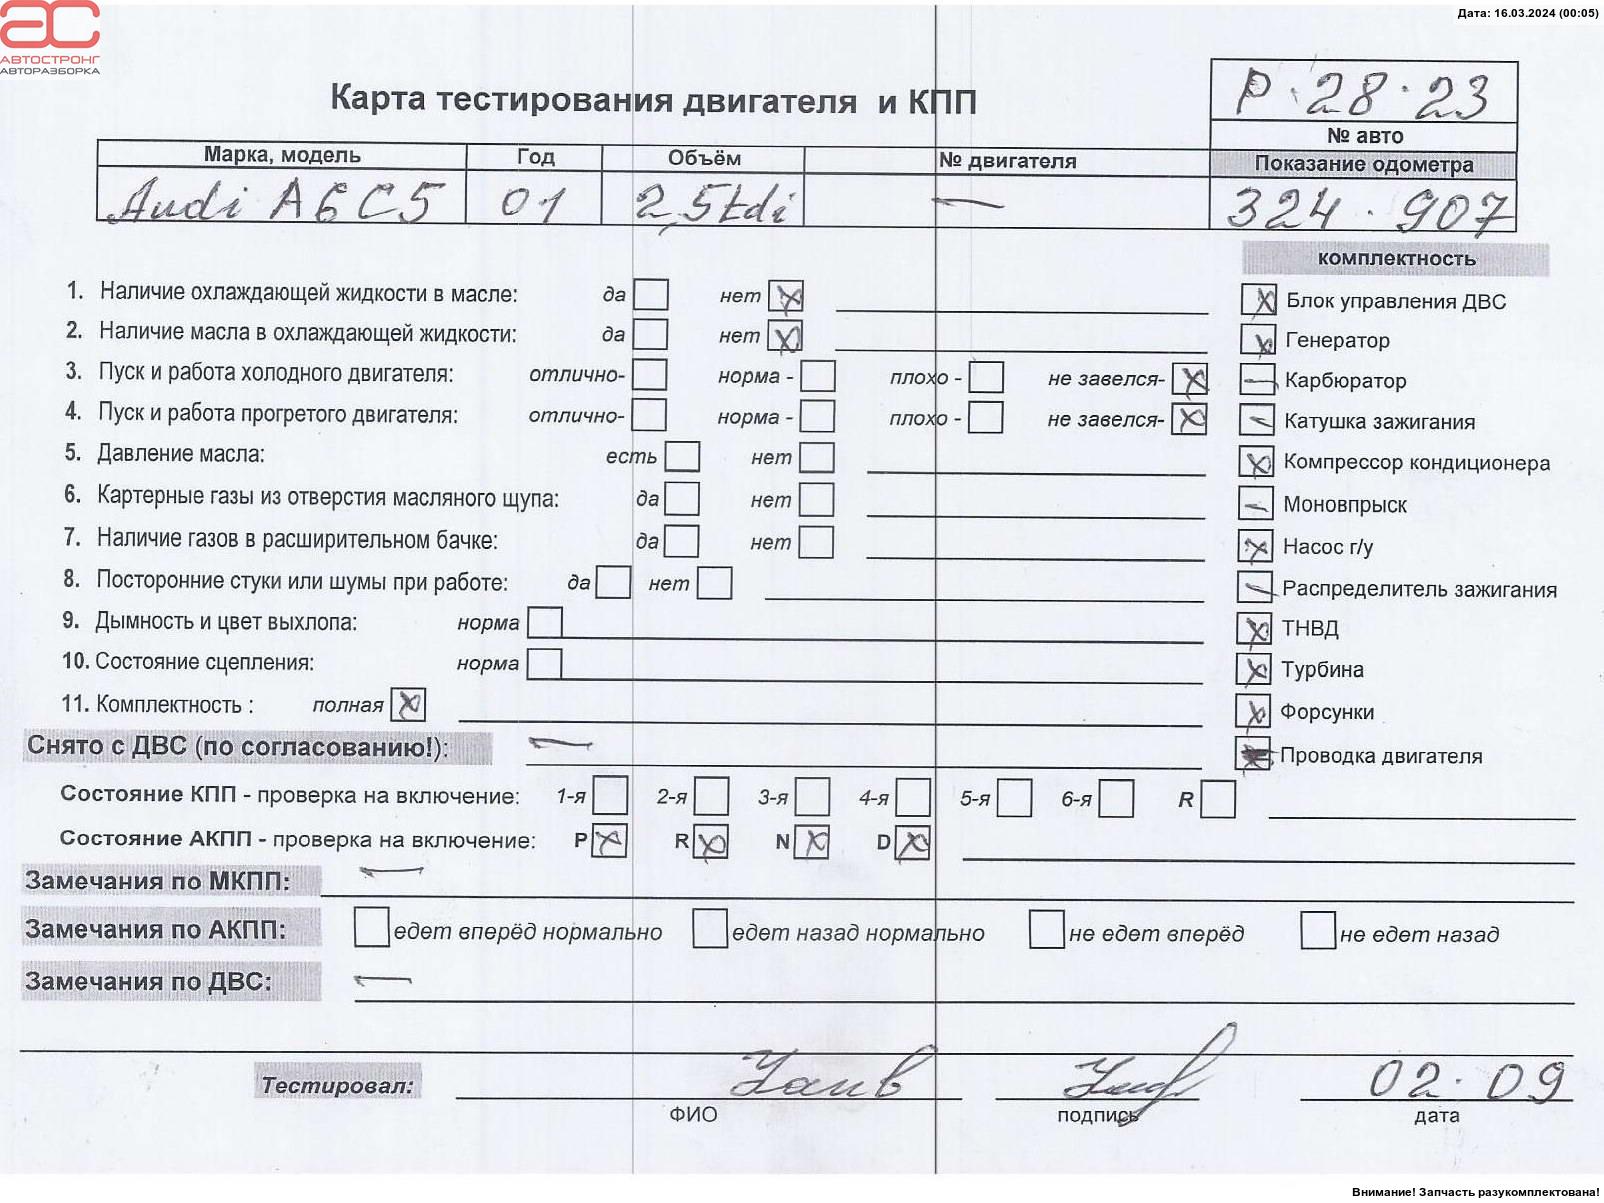 Дата: 16.03.2024 (00:05)
АС
АВТОСТРОНГ
АВТОРАЗБОРКА
Карта тестирования двигателя и КПП
Р·28·23
№ авто
Марка, модель Год Объём № двигателя Показание одометра
Audi A6C5 01 2,5tdi — 324·907
комплектность
1. Наличие охлаждающей жидкости в масле: да нет
2. Наличие масла в охлаждающей жидкости: да нет
3. Пуск и работа холодного двигателя: отлично- норма - плохо - не завелся-
4. Пуск и работа прогретого двигателя: отлично- норма - плохо - не завелся-
5. Давление масла: есть нет
6. Картерные газы из отверстия масляного щупа: да нет
7. Наличие газов в расширительном бачке: да нет
8. Посторонние стуки или шумы при работе: да нет
9. Дымность и цвет выхлопа: норма
10. Состояние сцепления: норма
11. Комплектность : полная
Блок управления ДВС
Генератор
Карбюратор
Катушка зажигания
Компрессор кондиционера
Моновпрыск
Насос г/у
Распределитель зажигания
ТНВД
Турбина
Форсунки
Проводка двигателя
Снято с ДВС (по согласованию!): —
Состояние КПП - проверка на включение: 1-я 2-я 3-я 4-я 5-я 6-я R
Состояние АКПП - проверка на включение: P R N D
Замечания по МКПП: —
Замечания по АКПП: едет вперёд нормально едет назад нормально не едет вперёд не едет назад
Замечания по ДВС: —
Тестировал: 02·09
ФИО подпись дата
Внимание! Запчасть разукомплектована!